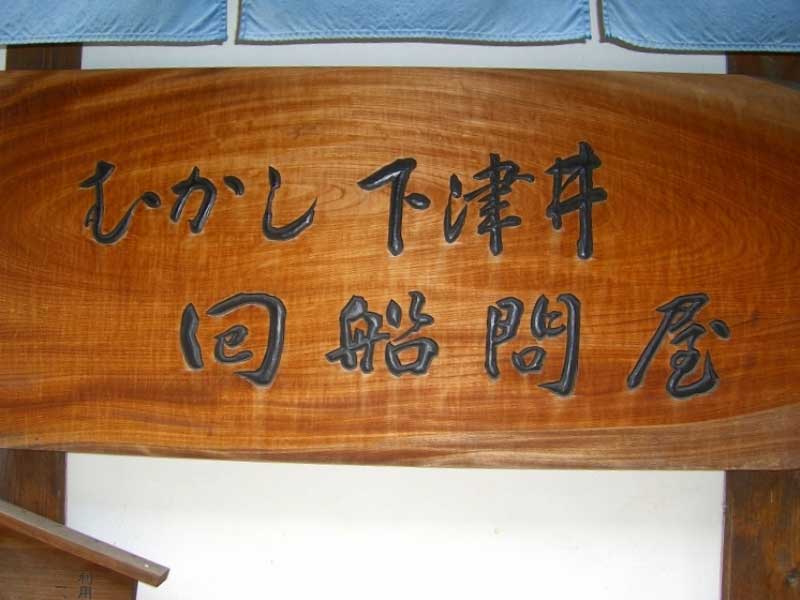 むかし下津井
回船問屋
利用